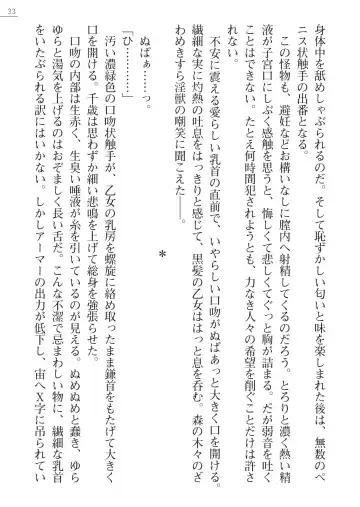 33
身体中を舐めしゃぶられるのだ。そして恥ずかしい匂いと味を楽しまれた後は、無数のペ
ニス状触手の出番となる。
この怪物も、避妊などお構いなしに膣内へ射精してくるのだろう。とろりと濃く熱い精
液が子宮口にしぶく感触を思うと、悔しくて悲しくてぐっと胸が詰まる。だが弱音を吐く
ことはできない。たとえ何時間犯されようとも、力なき人々の希望を削ぐことだけは許さ
れない。
不安に震える愛らしい乳首の直前で、いやらしい口吻がぬばあっと大きく口を開ける。
繊細な実に灼熱の吐息をはっきりと感じて、黒髪の乙女ははっと息を呑む。森の木々のざ
わめきすら淫獣の嘲笑に聞こえた――。
*
ぬばぁ……っ。
「ひ………っ」
汚い濃緑色の口吻状触手が、乙女の乳房を螺旋に絡め取ったまま鎌首をもたげて大きく
口を開ける。千歳は思わず細い悲鳴を上げて総身を強張らせた。
口吻の内部は生赤く、生臭い唾液が糸を引いているのが見える。ぬめぬめと蠢き、ゆら
ゆらと湯気を上げるのはおぞましく長い舌だ。こんな不潔で忌まわしい物に、繊細な乳首
をいたぶられる訳にはいかない。しかしアーマーの出力が低下し、宙へX字に吊られてい